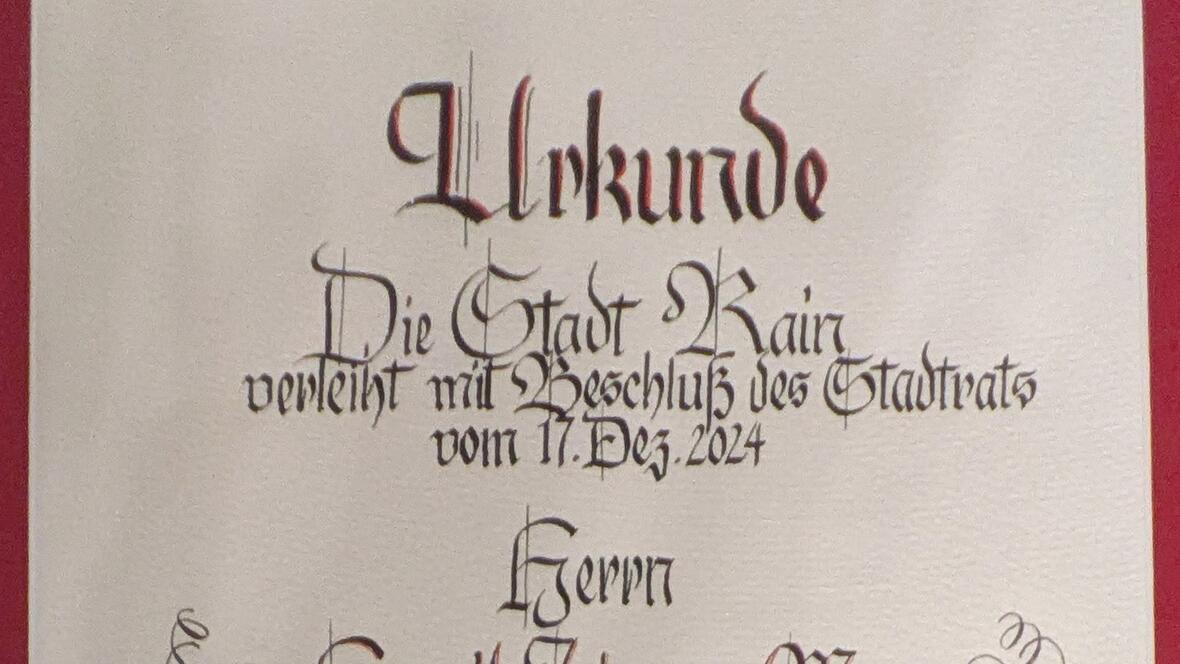 Urkunde
Die Stadt Rain
verleiht mit Beschluß des Stadtrats
vom 17. Dez. 2024
Herrn